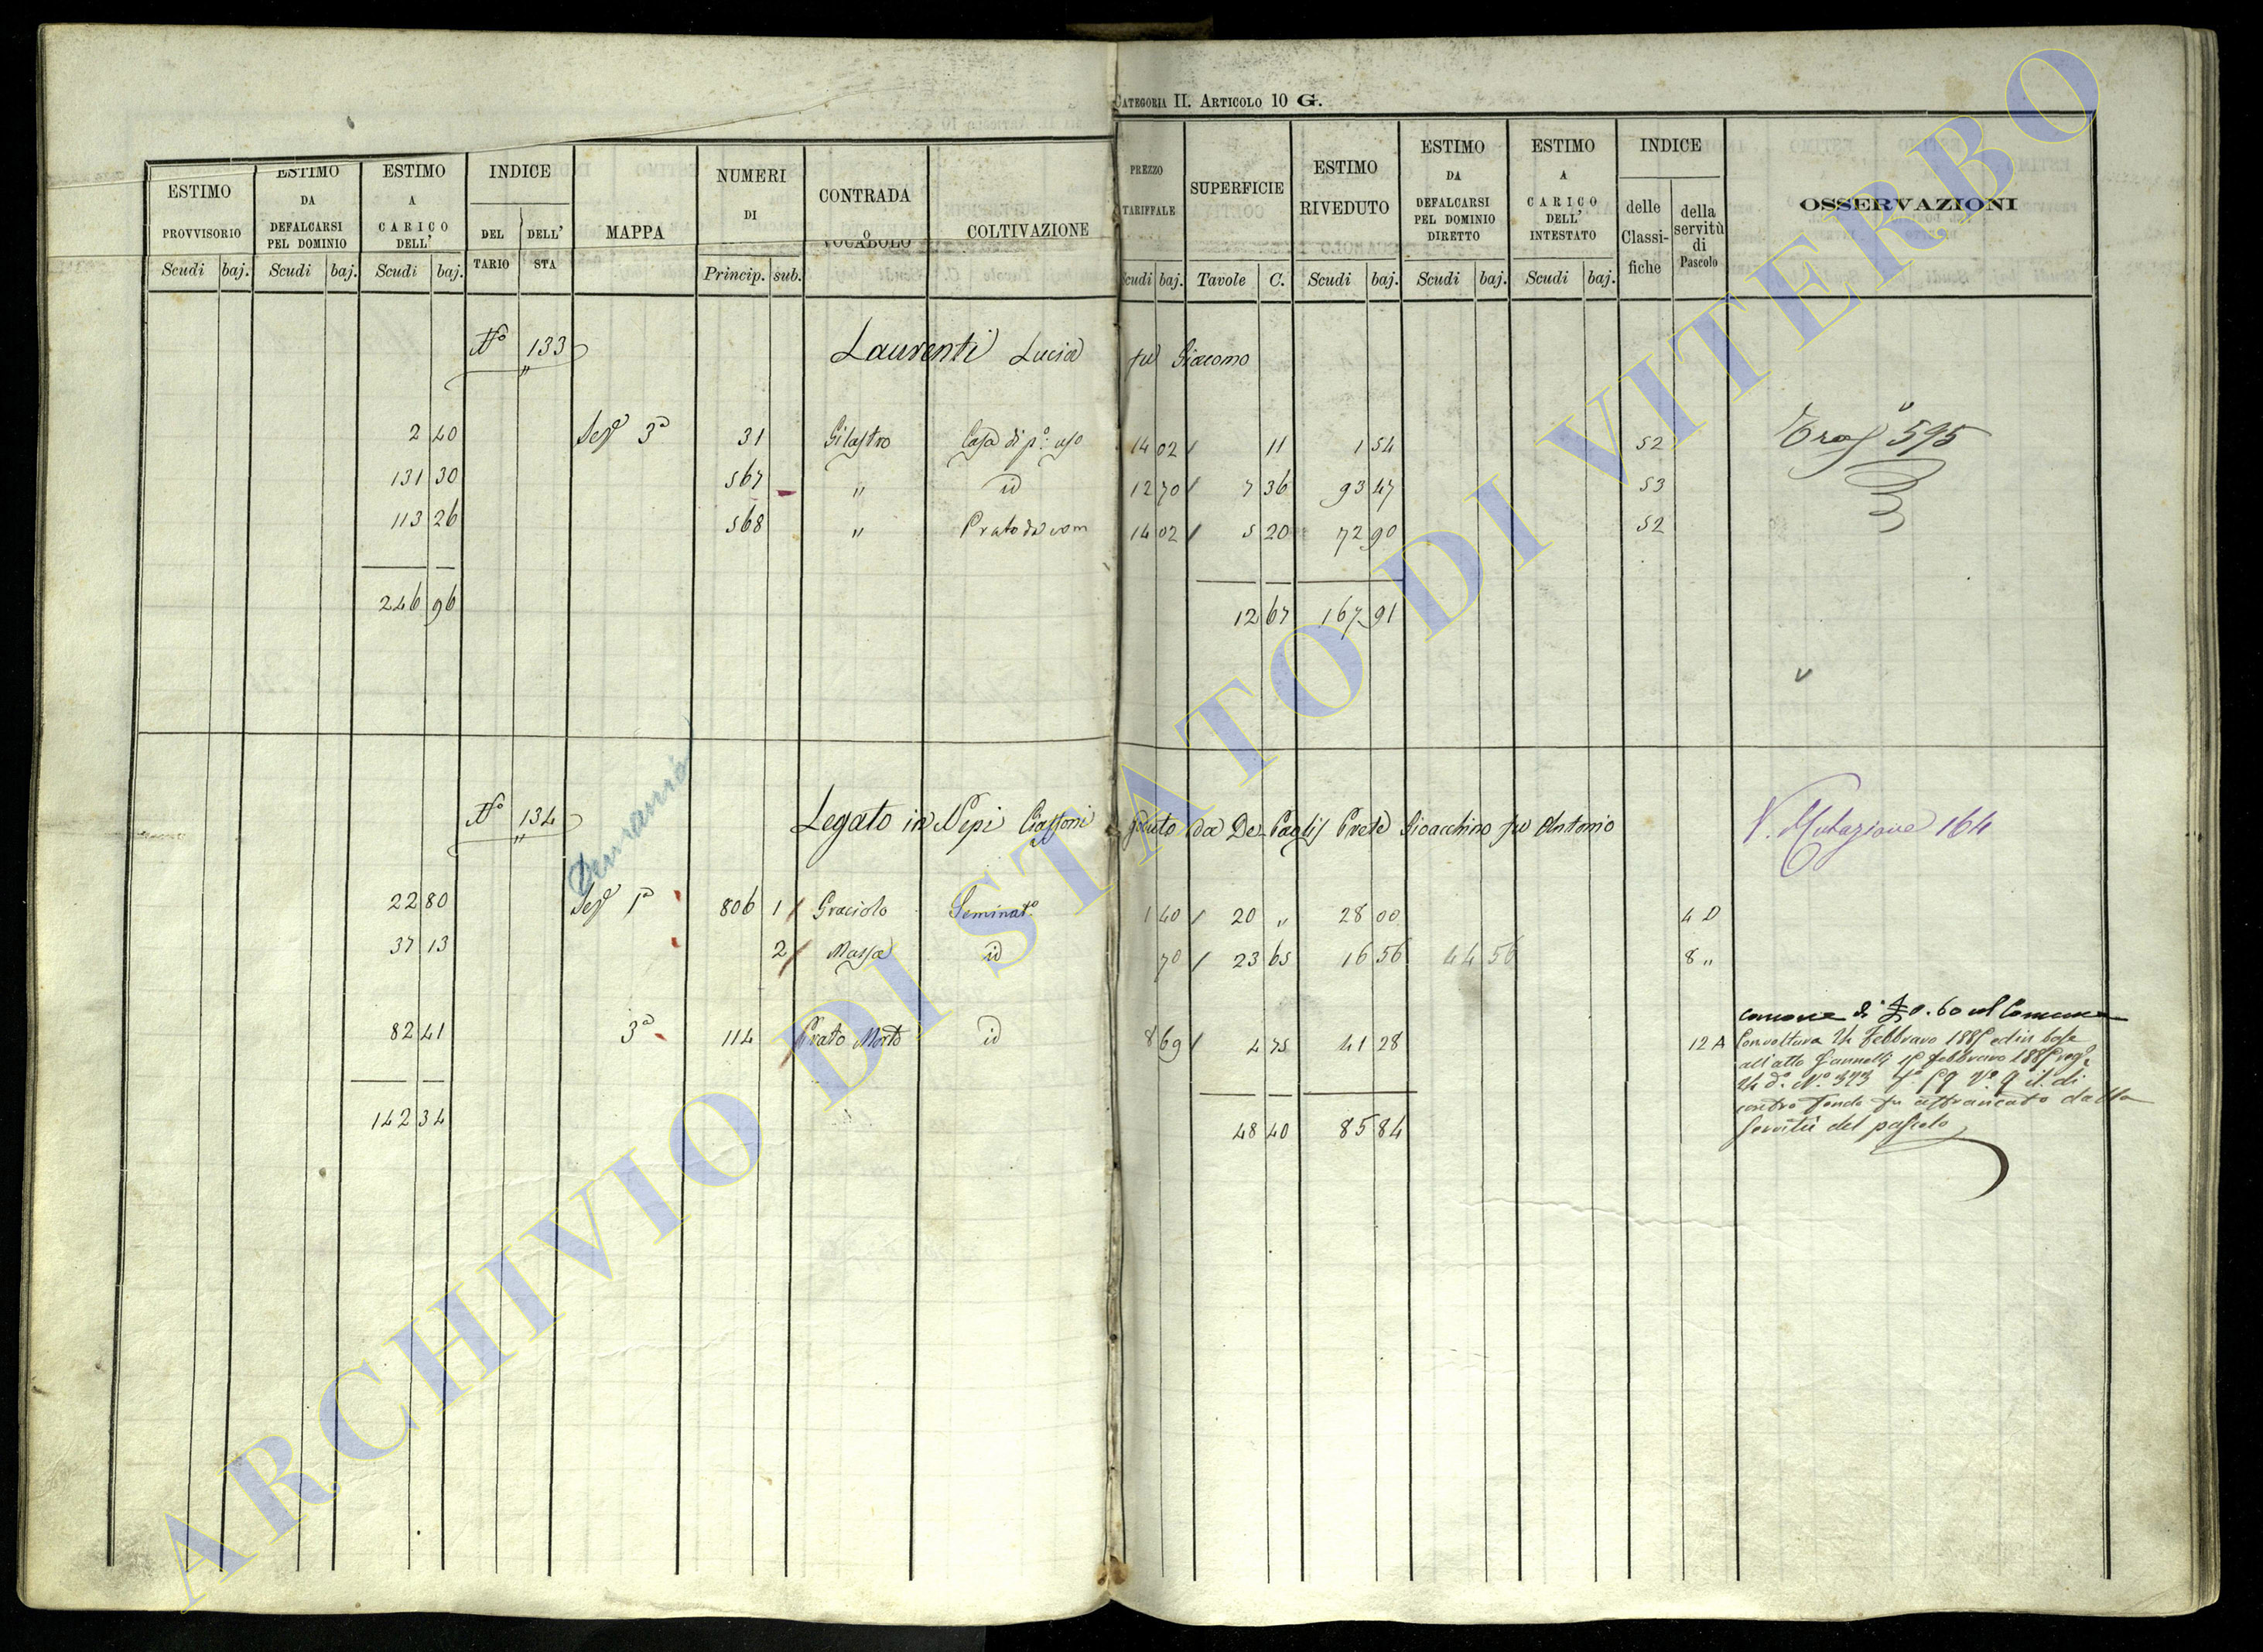 CATEGORIA II. ARTICOLO 10 G.
ESTIMO PROVVISORIO
ESTIMO DA DEFALCARSI PEL DOMINIO
ESTIMO A CARICO DELL'
INDICE
DEL TARIO
DELL' STA
MAPPA
NUMERI DI
CONTRADA O VOCABOLO
COLTIVAZIONE
PREZZO TARIFFALE
SUPERFICIE
ESTIMO RIVEDUTO
ESTIMO DA DEFALCARSI PEL DOMINIO DIRETTO
ESTIMO A CARICO DELL' INTESTATO
INDICE
delle Classifiche
della servitù di Pascolo
OSSERVAZIONI
Scudi baj. Scudi baj. Scudi baj. Princip. sub. Scudi baj. Tavole C. Scudi baj. Scudi baj. Scudi baj.
N° 133 Laurenti Lucia fu Giacomo
2 40 Sez^e 3ª 31 Gilastro Casa di p°. uso 14 02 / 11 1 54 52 595
131 30 567 " id 12 70 / 7 36 93 47 53
113 26 568 " Prato 14 02 / 5 20 72 90 52
246 96 12 67 167 91
N° 134 Legato in Nepi Ciaffoni goduto da De Paolis Prete Gioacchino fu Antonio V. Mutazione 164
Demanio
22 80 Sez^e 1ª 806 1 / Graciolo Seminat° 1 40 / 20 " 28 00 4 D
37 13 2 / Massa id 70 / 23 65 16 56 44 56 8 "
82 41 3ª 114 Prato Morto id 8 69 / 4 75 41 28 12 A
142 34 48 40 85 84
canone di 0.60 col Comune
Con voltura 24 Febbraro 188 ed in base
all'atto Giannelli febbraro 188
24 d° N° 323
contro fondo fu affrancato dalla
servitù del pascolo
ARCHIVIO DI STATO DI VITERBO